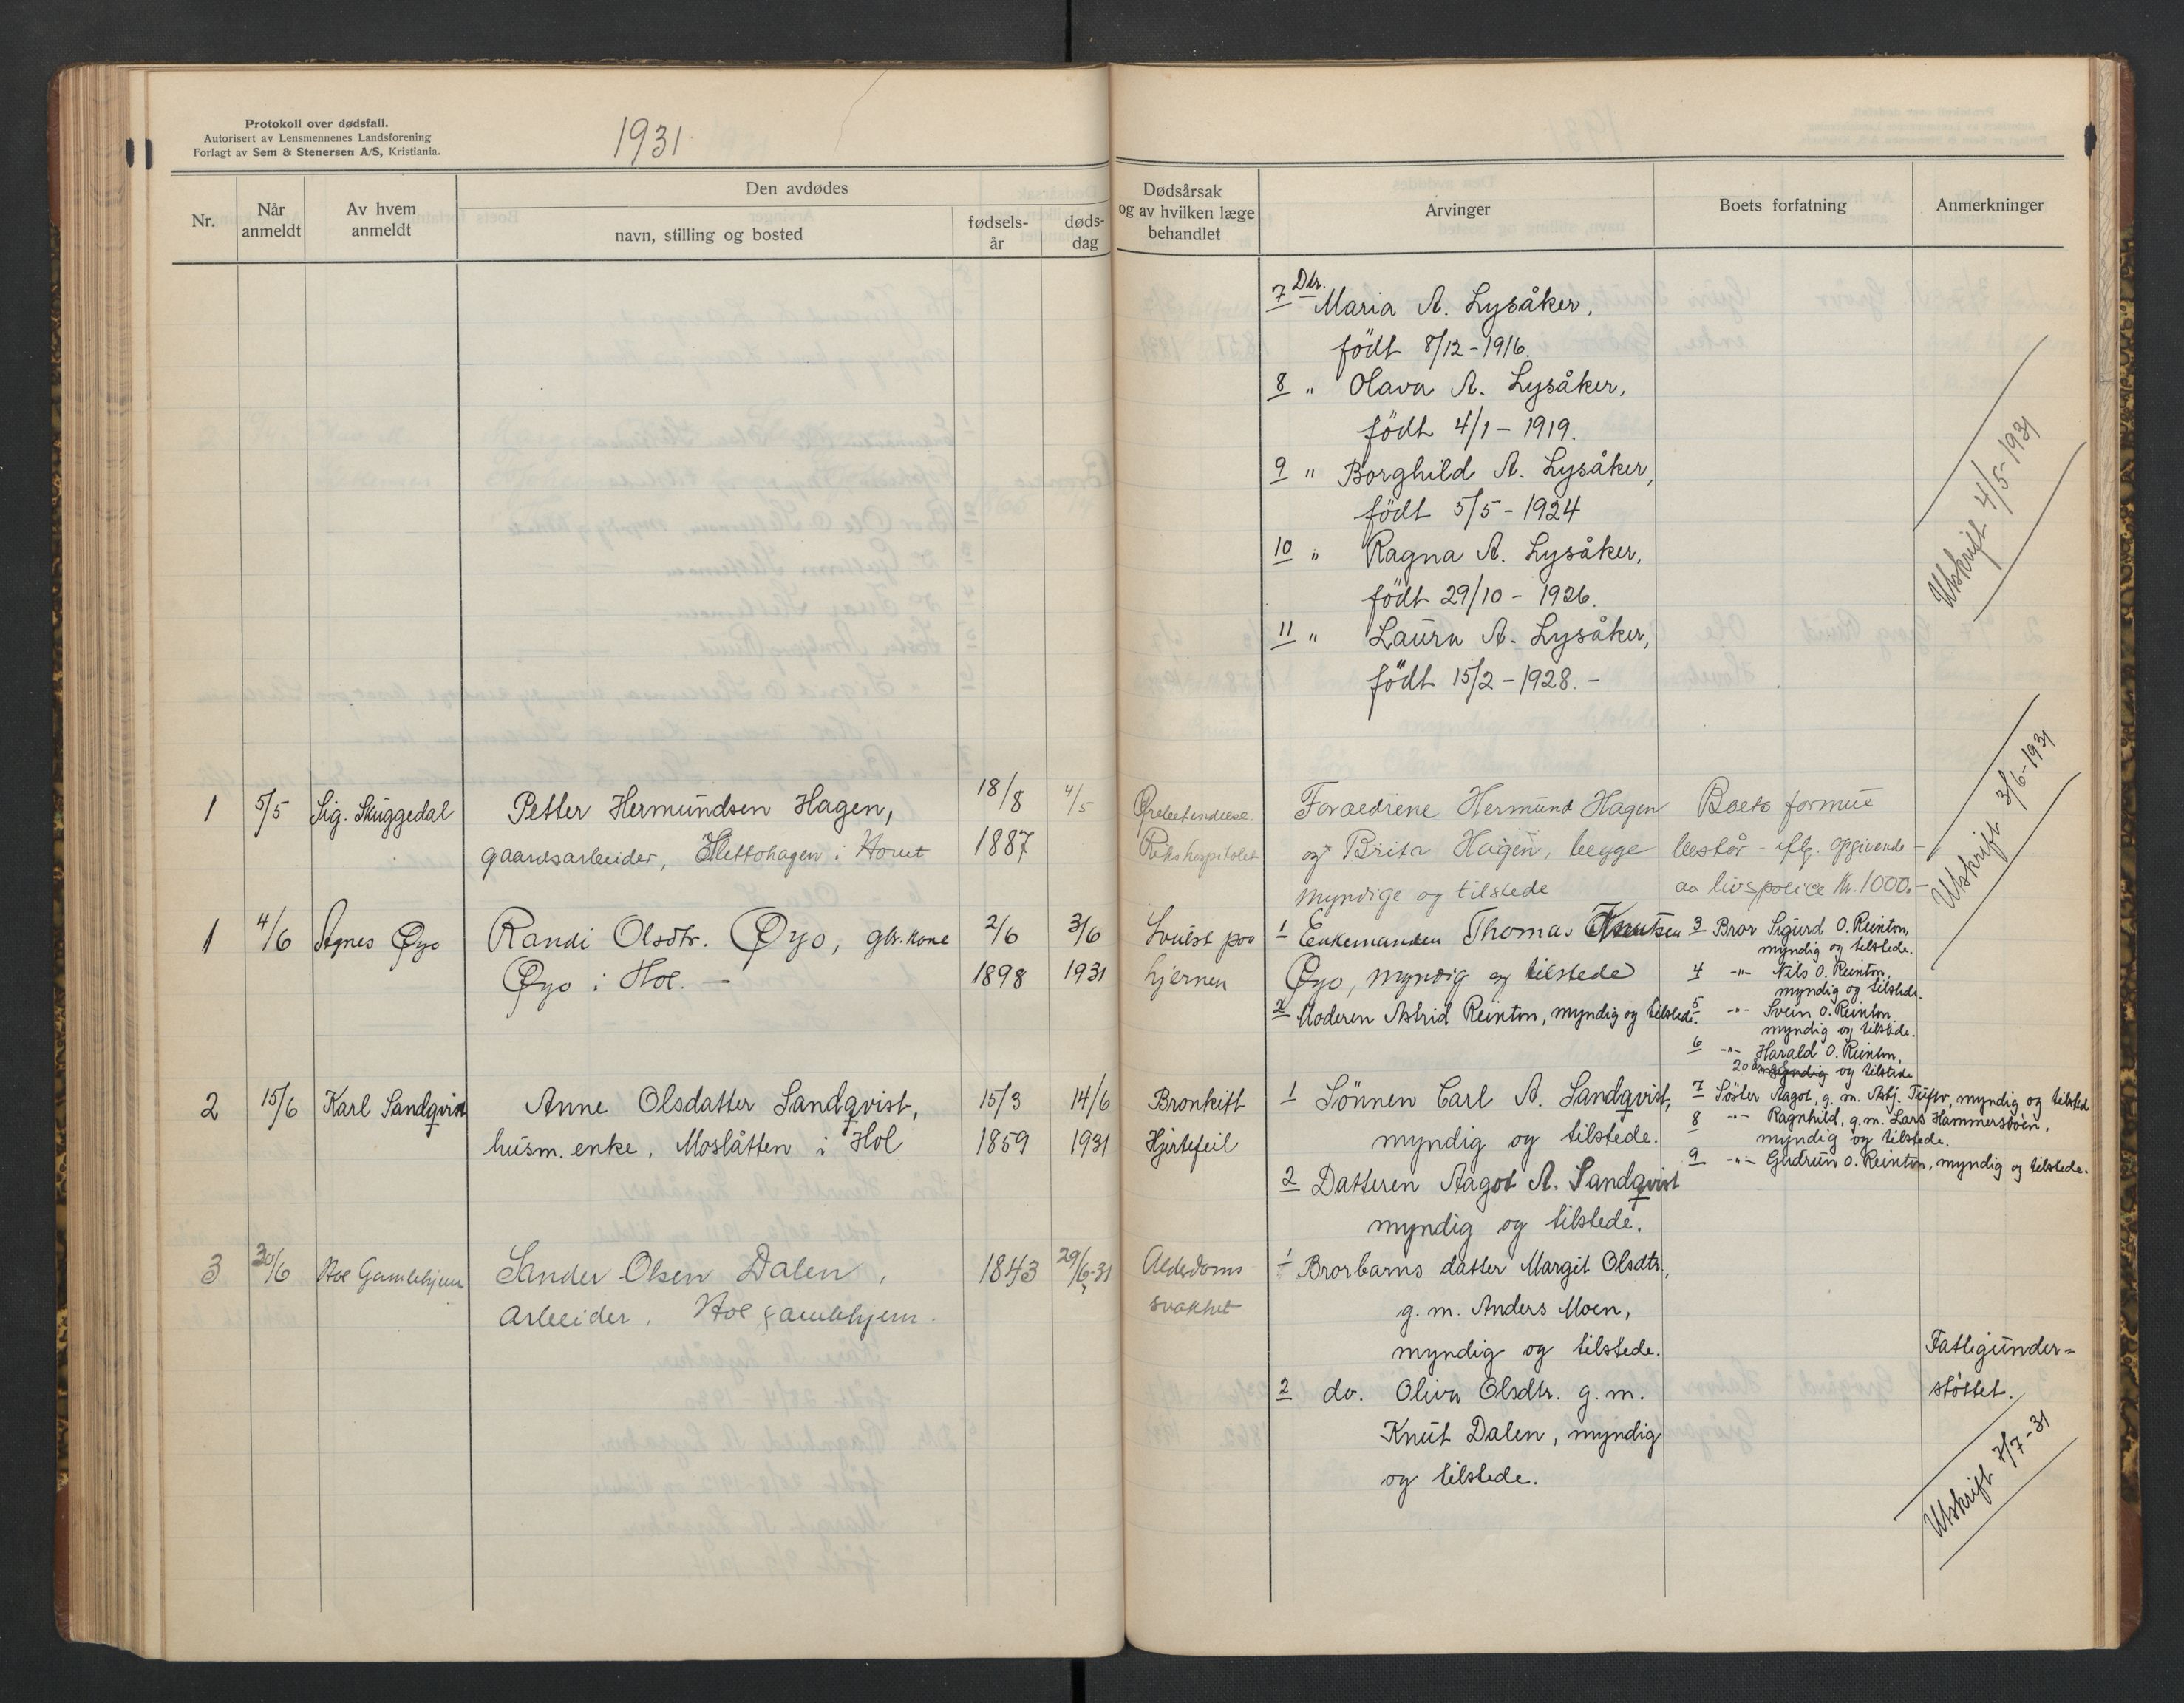 Protokoll over dødsfall.
Autorisert av Lensmennenes Landsforening
Forlagt av Sem & Stenersen A/S, Kristiania.
1931
Nr.
Når anmeldt
Av hvem anmeldt
Den avdødes
navn, stilling og bosted
fødsels-
år
døds-
dag
Dødsårsak
og av hvilken læge
behandlet
Arvinger
Boets forfatning
Anmerkninger
7 Dtr. Maria A. Lysåker,
födt 8/12-1916.
8 " Olava A. Lysåker,
födt 4/1-1919.
9 " Borghild A. Lysåker,
födt 5/5-1924
10 " Ragna A. Lysåker,
födt 29/10-1926.
11 " Laura A. Lysåker,
födt 15/2-1928.-
Utskrift 4/5-1931
1 5/5 Sig. Skuggedal
Petter Hermundsen Hagen,
gaardsarbeider, Slettohagen i Hovet
18/8
1887
4/5
Rikshospitalet
Foraedrene Hermund Hagen
og Brita Hagen, begge
myndige og tilstede
Boets formue
består - iflg. opgivende -
aa livspolice Kr. 1000.-
Utskrift 3/6-1931
1 4/6 Agnes Øyo
Randi Olsdtr. Øyo, gbr. kone
Øyo i Hol. -
2/6
1898
3/6
1931
Svulst paa
hjernen
1 Enkemanden Thomas Knutsen
Øyo, myndig og tilstede
2 Moderen Astrid Reinton, myndig og tilstede.
3 Bror Sigurd O. Reinton,
myndig og tilstede.
4 -"- Nils O. Reinton,
myndig og tilstede.
5 -"- Svein O. Reinton
myndig og tilstede.
6 -"- Harald O. Reinton,
20 år myndig og tilstede
7 Söster Aagot, g. m. Asbj. Tufto, myndig og tilsted
8 -"- Ragnhild, g.m. Lars Hammersböen,
myndig og tilstede.
9 -"- Gudrun O. Reinton, myndig og tilstede.
2 15/6 Karl Sandqvist
Anne Olsdatter Sandqvist,
husm. enke, Moslåtten i Hol
15/3
1859
14/6
1931
Bronkitt
Hjertefeil
1 Sönnen Carl A. Sandqvist,
myndig og tilstede.
2 Datteren Aagot A. Sandqvist
myndig og tilstede.
3 30/6 Hol Gamlehjem
Sander Olsen Dalen,
arbeider, Hol gamlehjem.
1843
29/6-31
Alderdoms
svakhet
1 Brorbarns datter Margit Olsdtr.,
g. m. Anders Moen,
myndig og tilstede.
2 do. Oliva Olsdtr. g. m.
Knut Dalen, myndig
og tilstede.
Fattigunder=
stöttet.
Utskrift 7/7-31